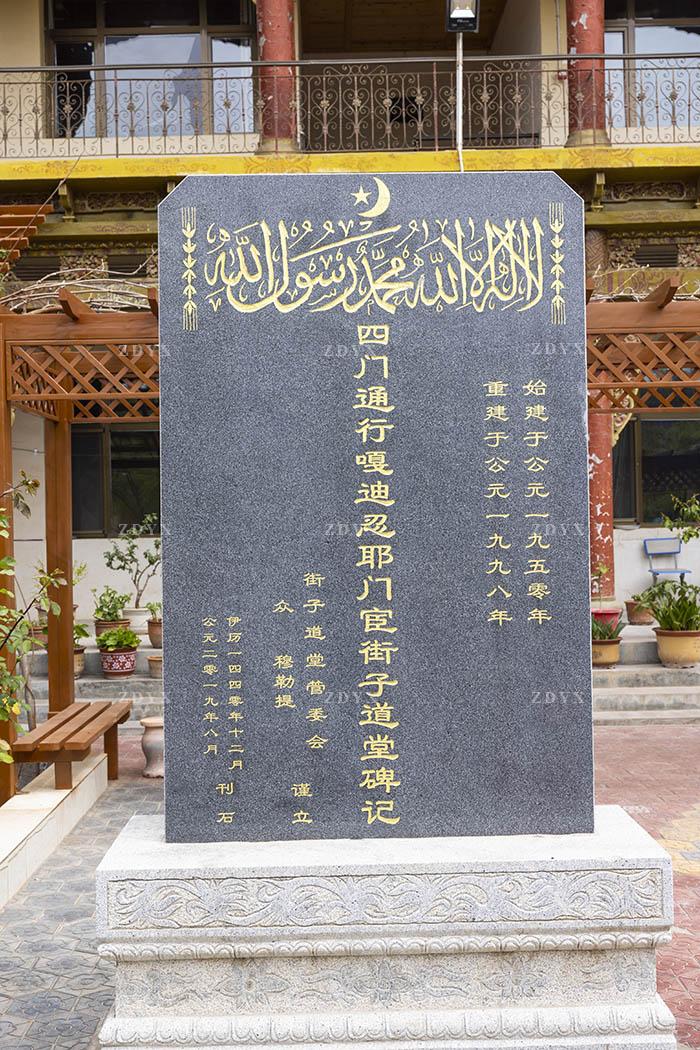 لا إله إلا الله محمد رسول الله
始建于公元一九五零年
重建于公元一九九八年
四门通行嘎迪忍耶门宦街子道堂碑记
街子道堂管委会
众 穆勒提
谨立
伊历一四四零年十二月
公元二零一九年八月
刊石
ZDYX
ZDYX
ZDYX
ZDYX
ZDYX
ZDYX
ZDYX
ZDYX
ZDYX